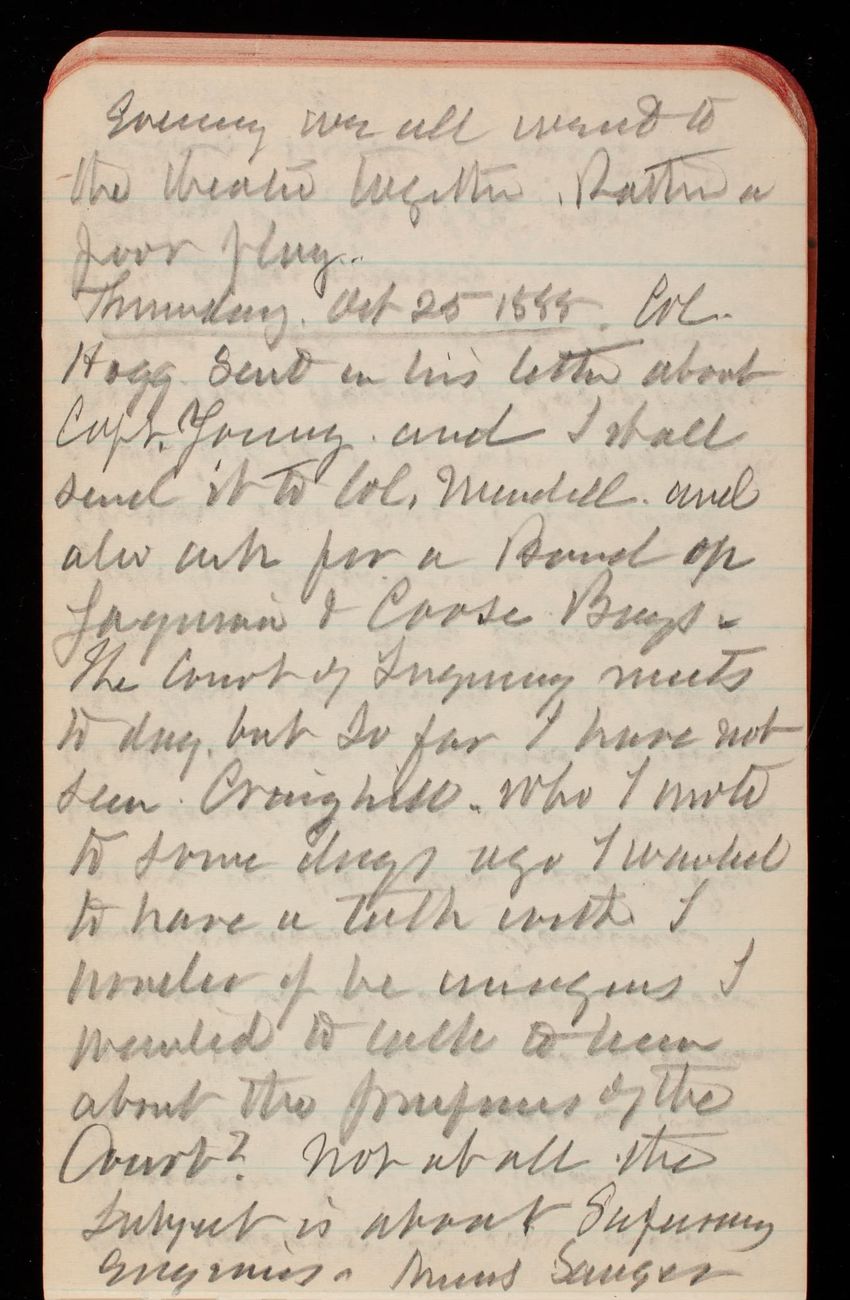 Evening we all went to
the theatre together. Rather a
poor play.
Thursday. Oct 25 1888. Col.
Hogg sent in his letter about
Capt. Young. and I shall
send it to Col. Mendell. and
also ask for a Board on
Yaquina & Coose Bays.
The Court of Inquiry meets
to day. but so far I have not
seen Craighill. who I wrote
to some days ago I wanted
to have a talk with. I
wonder if he imagines I
wanted to talk to him
about the purposes of the
Court? Not at all the
subject is about
Engineers. Sanger